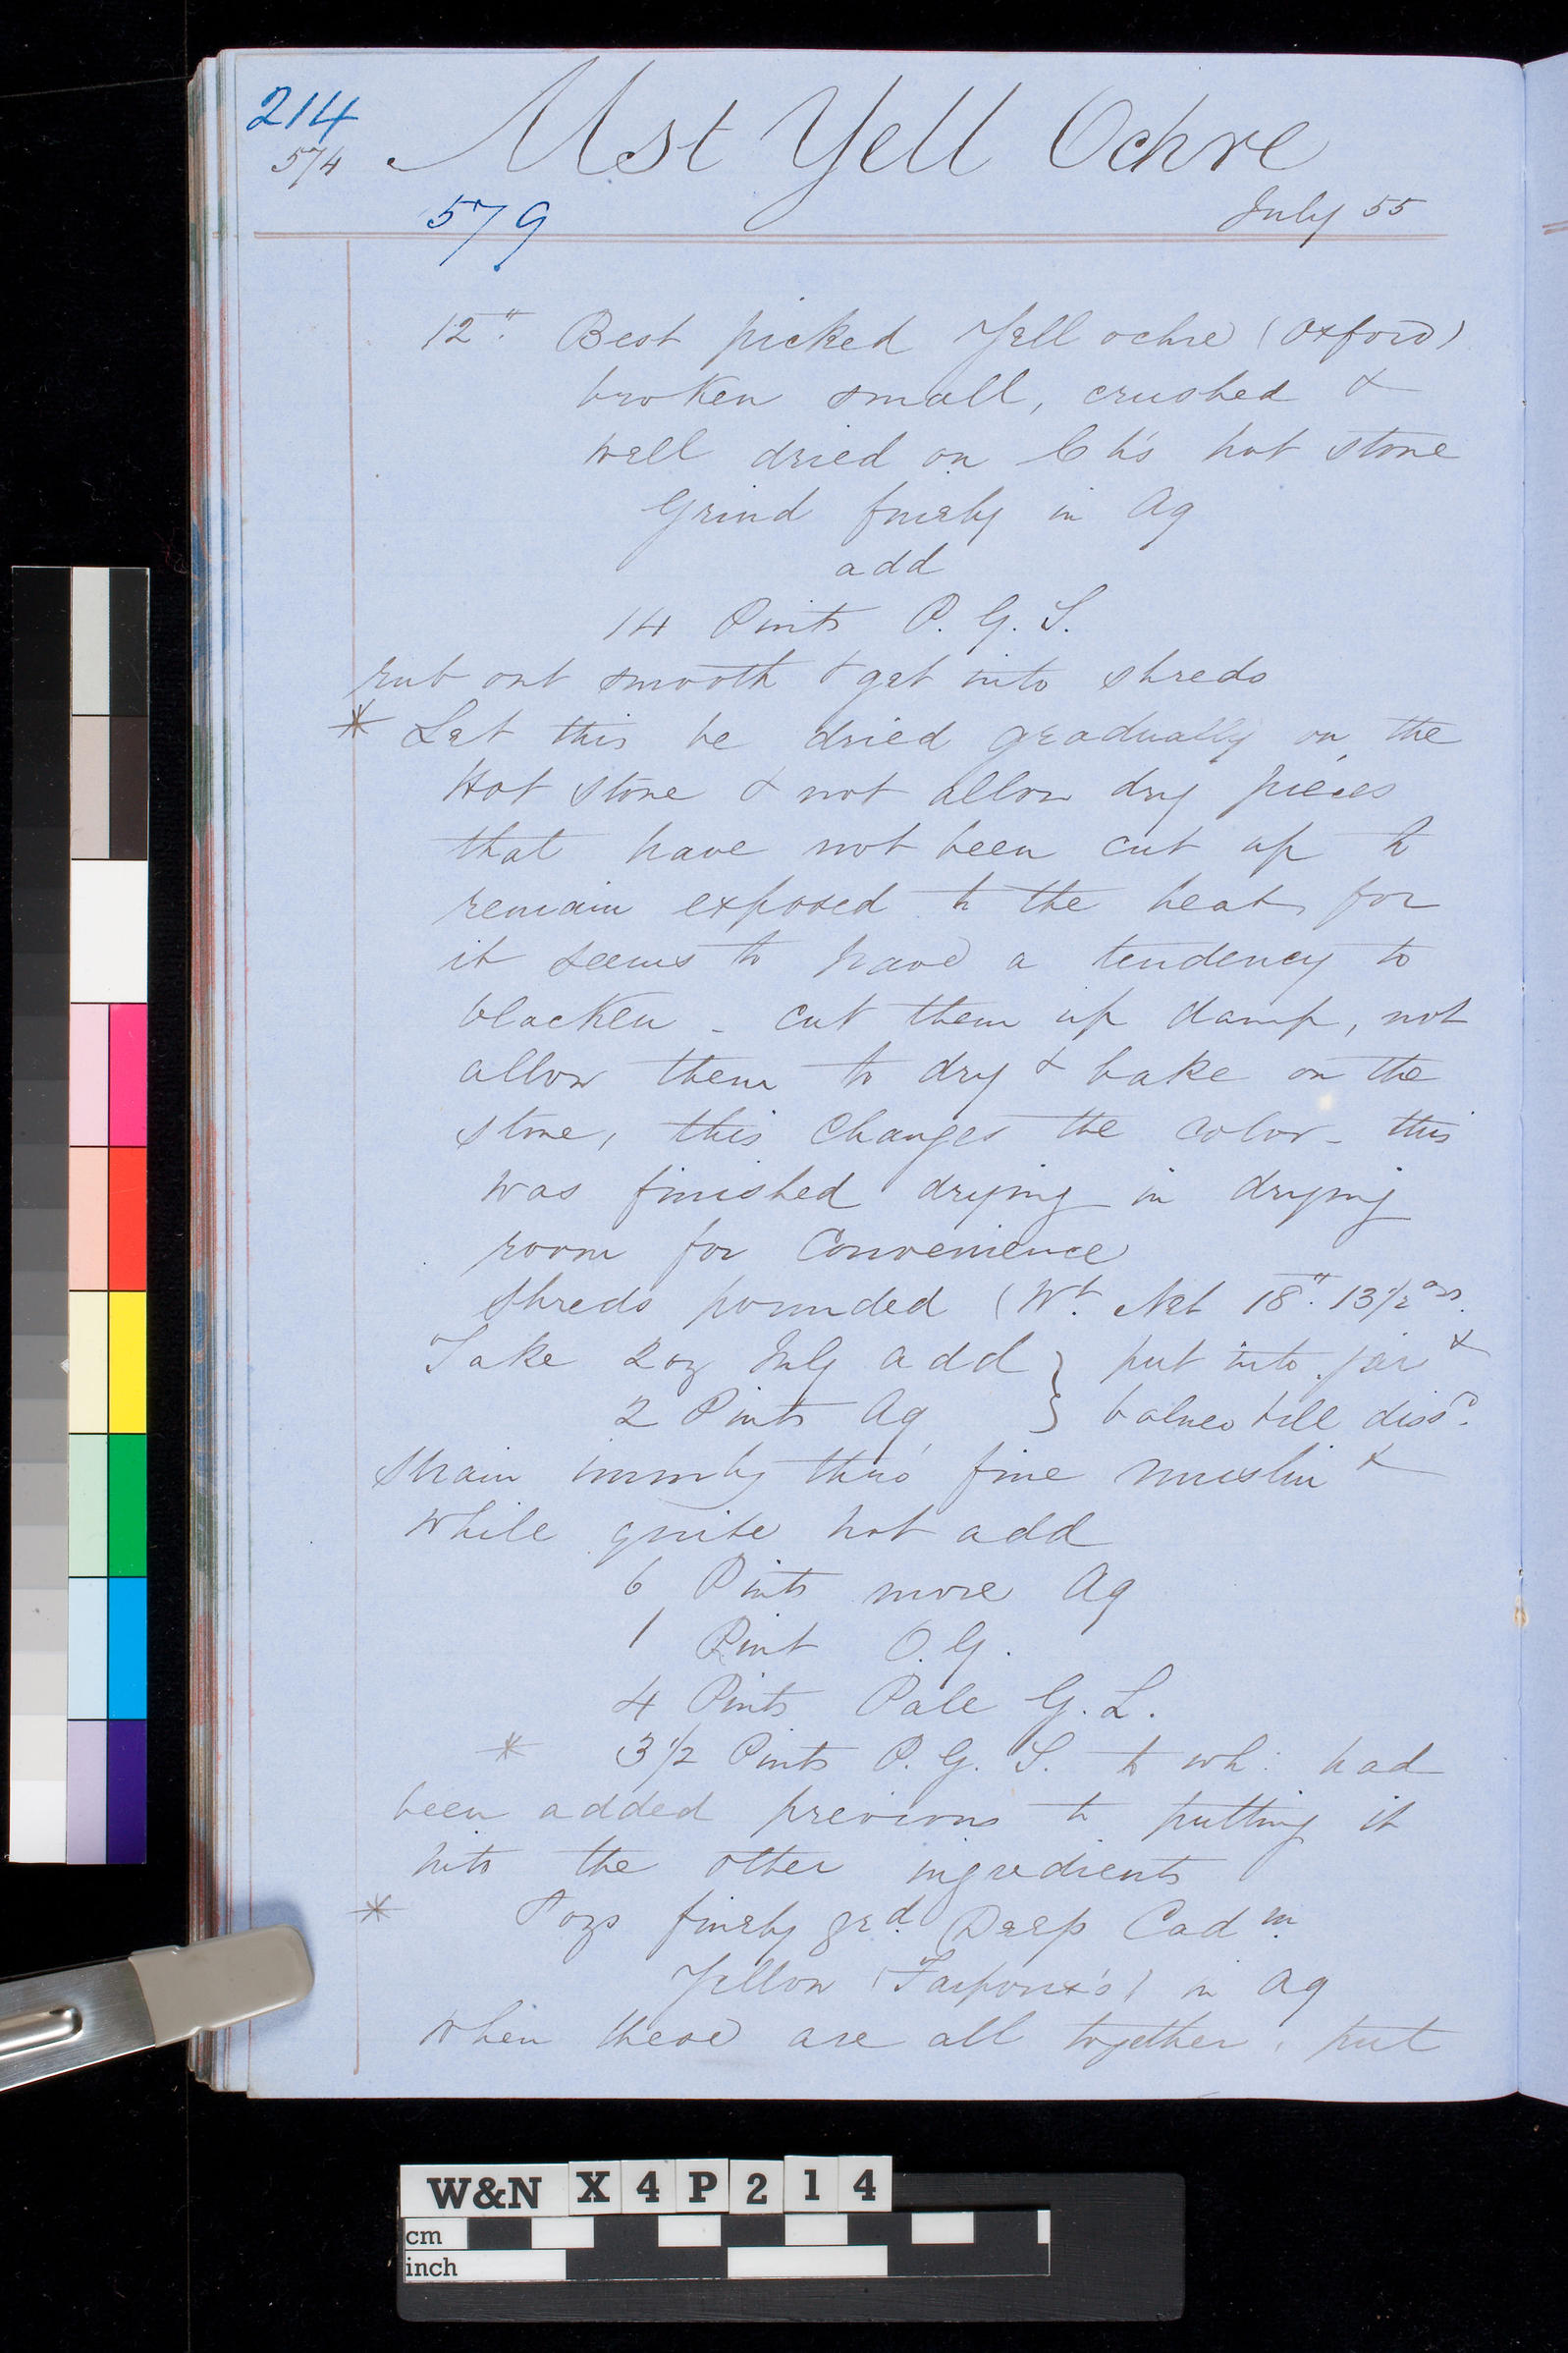 214
574
Mst Yell Ochre
579
July 55
12" Best picked Yell ochre (Oxford)
broken small, crushed &
well dried on Ch's hot stone
Grind finely in Aq
add
14 Pints P. G. S.
rub out smooth & get into shreds
* Let this be dried gradually on the
Hot stone & not allow dry pieces
that have not been cut up to
remain exposed to the heat, for
it seems to have a tendency to
blacken - cut them up damp, not
allow them to dry & bake on the
stone, this changes the color - this
was finished drying in drying
room for Convenience
Shreds pounded (Wt. Net 18" 13 1/2 ozs.
Take 2 oz add } put into jar &
2 Pints Aq } balneo till dissd.
Strain thro' fine muslin &
while quite hot add
6 Pints more Aq
1 Pint O. G.
4 Pints Pale G. L.
* 3 1/2 Pints P. G. S. to wh: had
been added previous to putting it
into the other ingredients
* ozs finely grd. Deep Cadm.
Yellow in Aq
When these are all together, put
W&N X 4 P 2 1 4
cm
inch